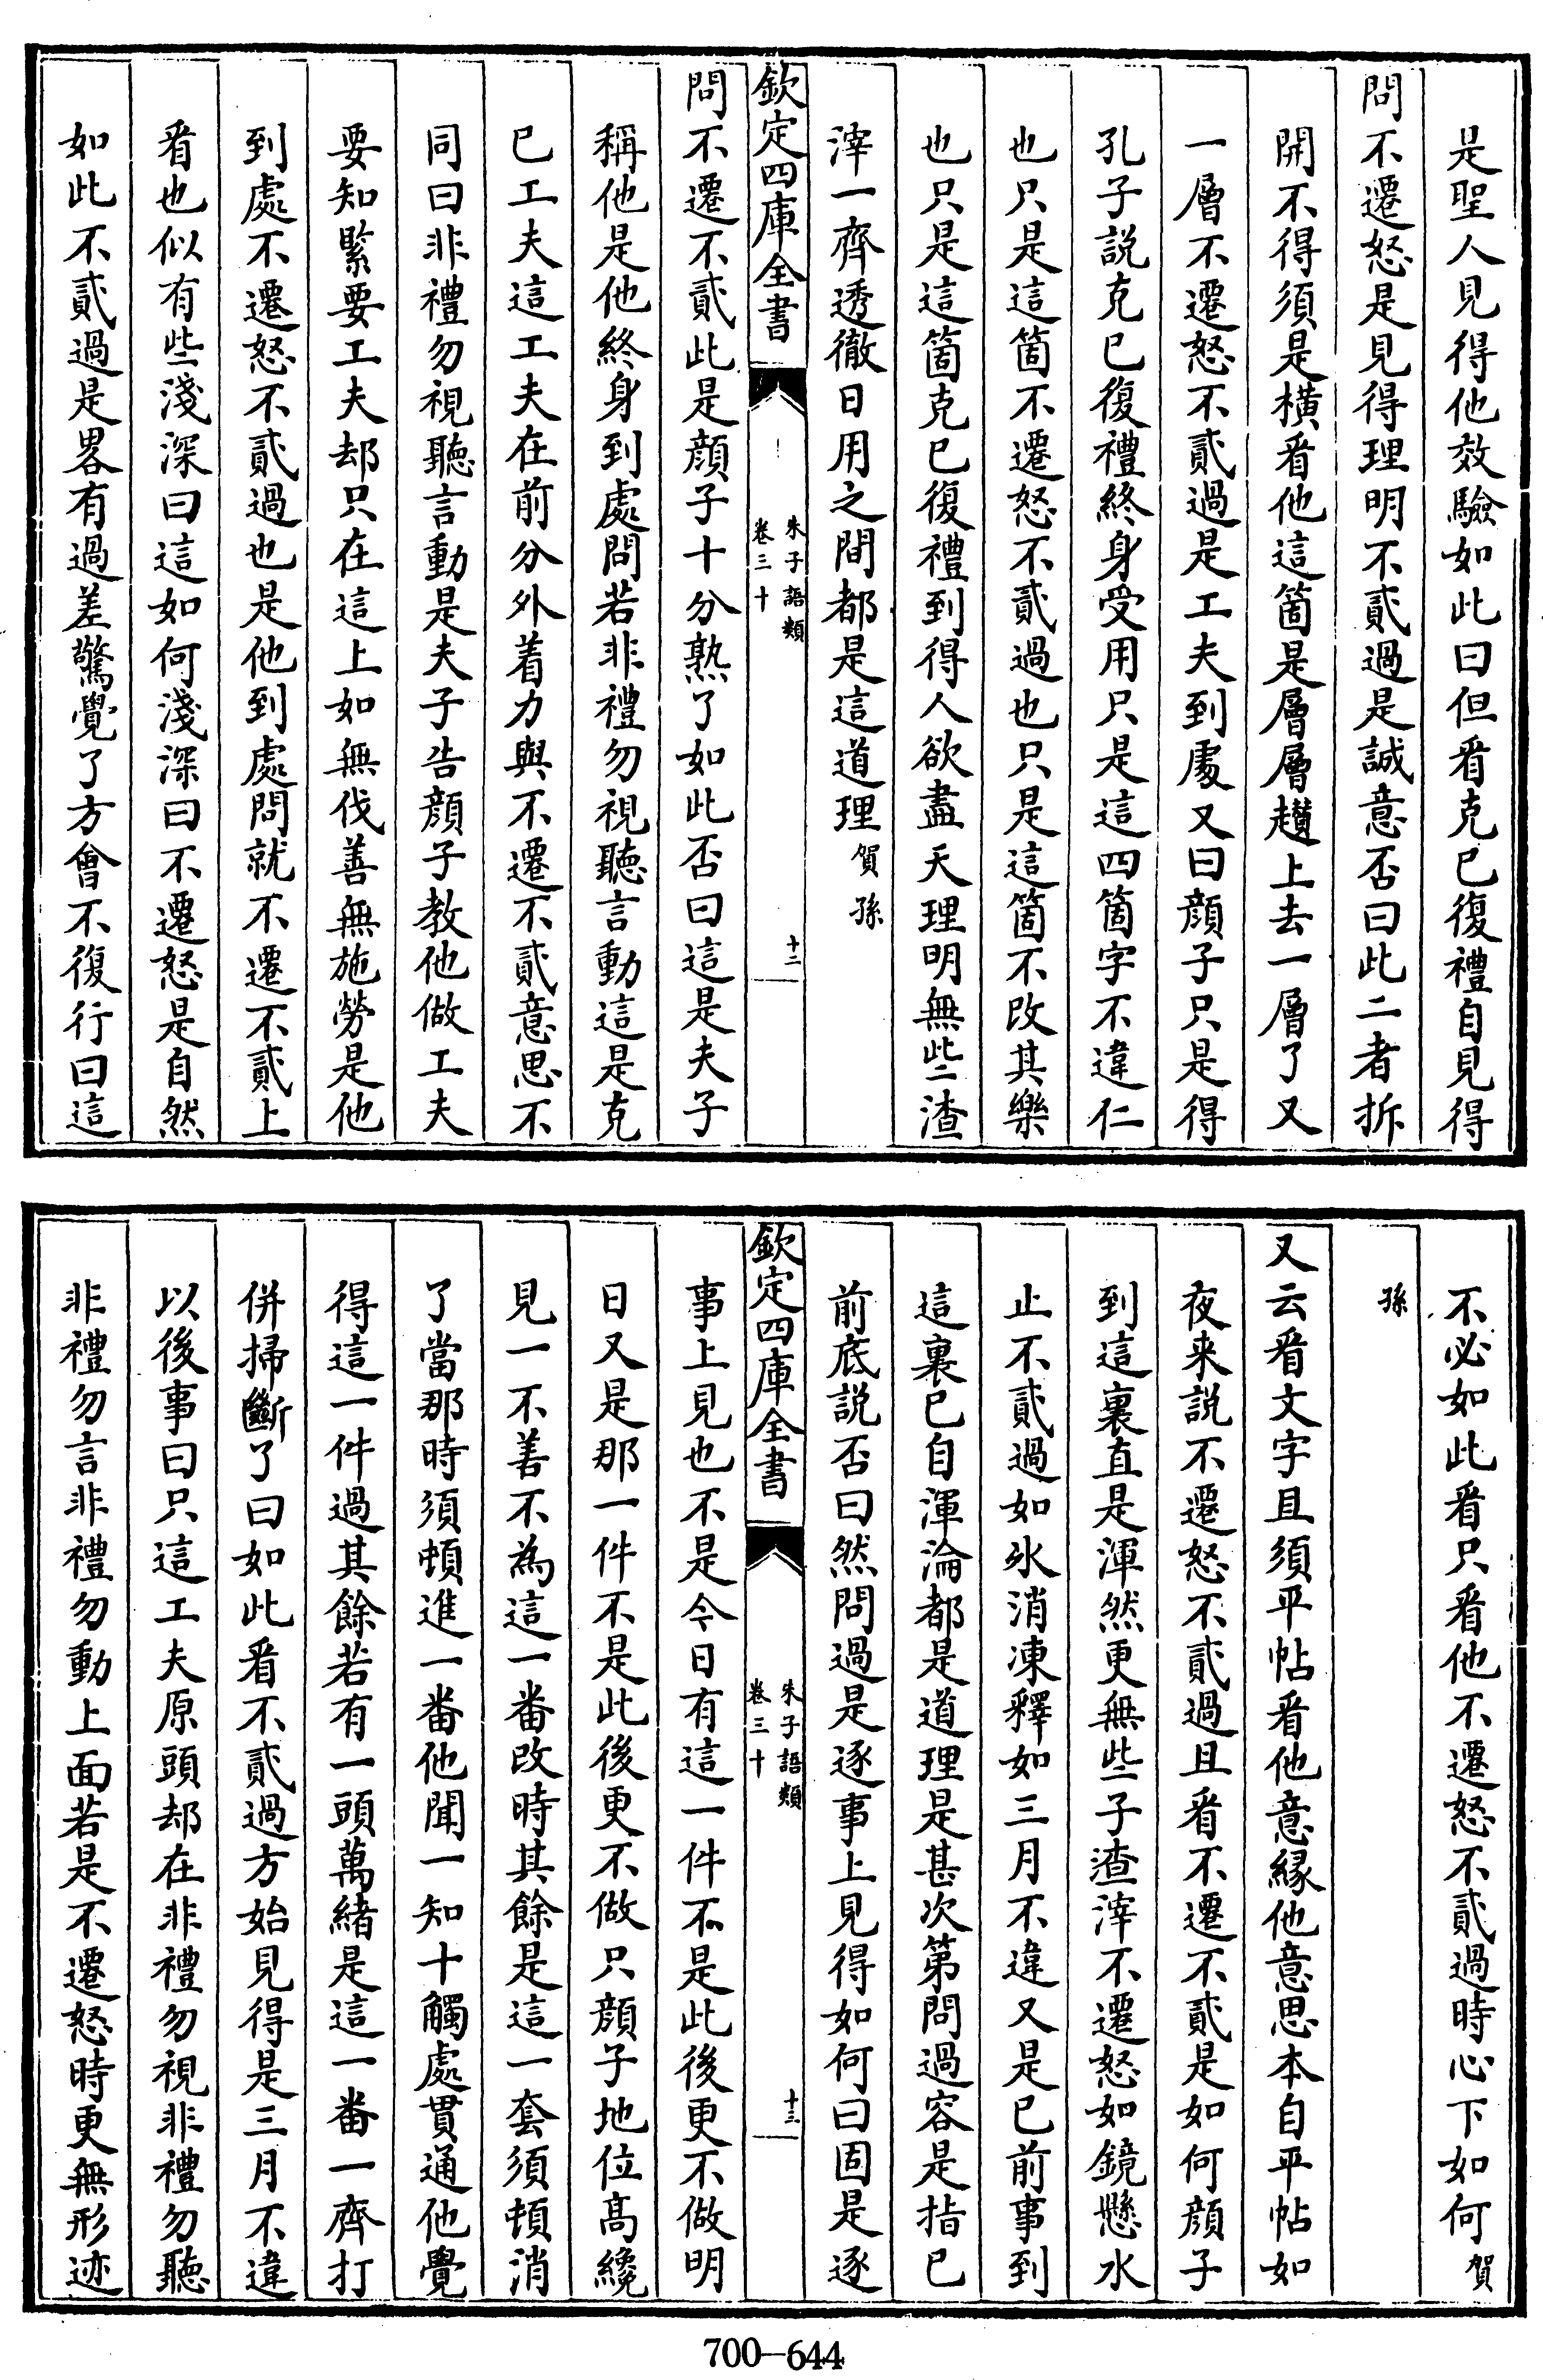 是聖人見得他效驗如此曰但㸔克已復禮自見得
問不遷怒是見得理明不貳過是誠意否曰此二者拆
開不得須是横㸔他這箇是層層趲上去一層了又
一層不遷怒不貳過是工夫到處又曰顔子只是得
孔子説克已復禮終身受用只是這四箇字不違仁
也只是這箇不遷怒不貳過也只是這箇不改其樂
也只是這箇克已復禮到得人欲盡天理明無些渣
滓一齊透徹日用之間都是這道理賀孫
欽定四庫全書
朱子語類
卷三十
十二
問不遷不貳此是顔子十分熟了如此否曰這是夫子
稱他是他終身到處問若非禮勿視聽言動這是克
已工夫這工夫在前分外着力與不遷不貳意思不
同曰非禮勿視聽言動是夫子告顔子教他做工夫
要知緊要工夫却只在這上如無伐善無施勞是他
到處不遷怒不貳過也是他到處問就不遷不貳上
㸔也似有些淺深曰這如何淺深曰不遷怒是自然
如此不貳過是畧有過差驚覺了方會不復行曰這
不必如此㸔只㸔他不遷怒不貳過時心下如何賀
孫
又云㸔文字且須平帖㸔他意縁他意思本自平帖如
夜来説不遷怒不貳過且㸔不遷不貳是如何顔子
到這裏直是渾然更無些子渣滓不遷怒如鏡懸水
止不貳過如氷消凍釋如三月不違又是已前事到
這裏已自渾淪都是道理是甚次第問過容是指已
前底説否曰然問過是逐事上見得如何曰固是逐
欽定四庫全書
朱子語類
卷三十
十三
事上見也不是今日有這一件不是此後更不做明
日又是那一件不是此後更不做只顔子地位髙纔
見一不善不為這一番改時其餘是這一套須頓消
了當那時須頓進一番他聞一知十觸處貫通他覺
得這一件過其餘若有一頭萬緒是這一番一齊打
併掃斷了曰如此㸔不貳過方始見得是三月不違
以後事曰只這工夫原頭却在非禮勿視非禮勿聽
非禮勿言非禮勿動上面若是不遷怒時更無形迹
700-644